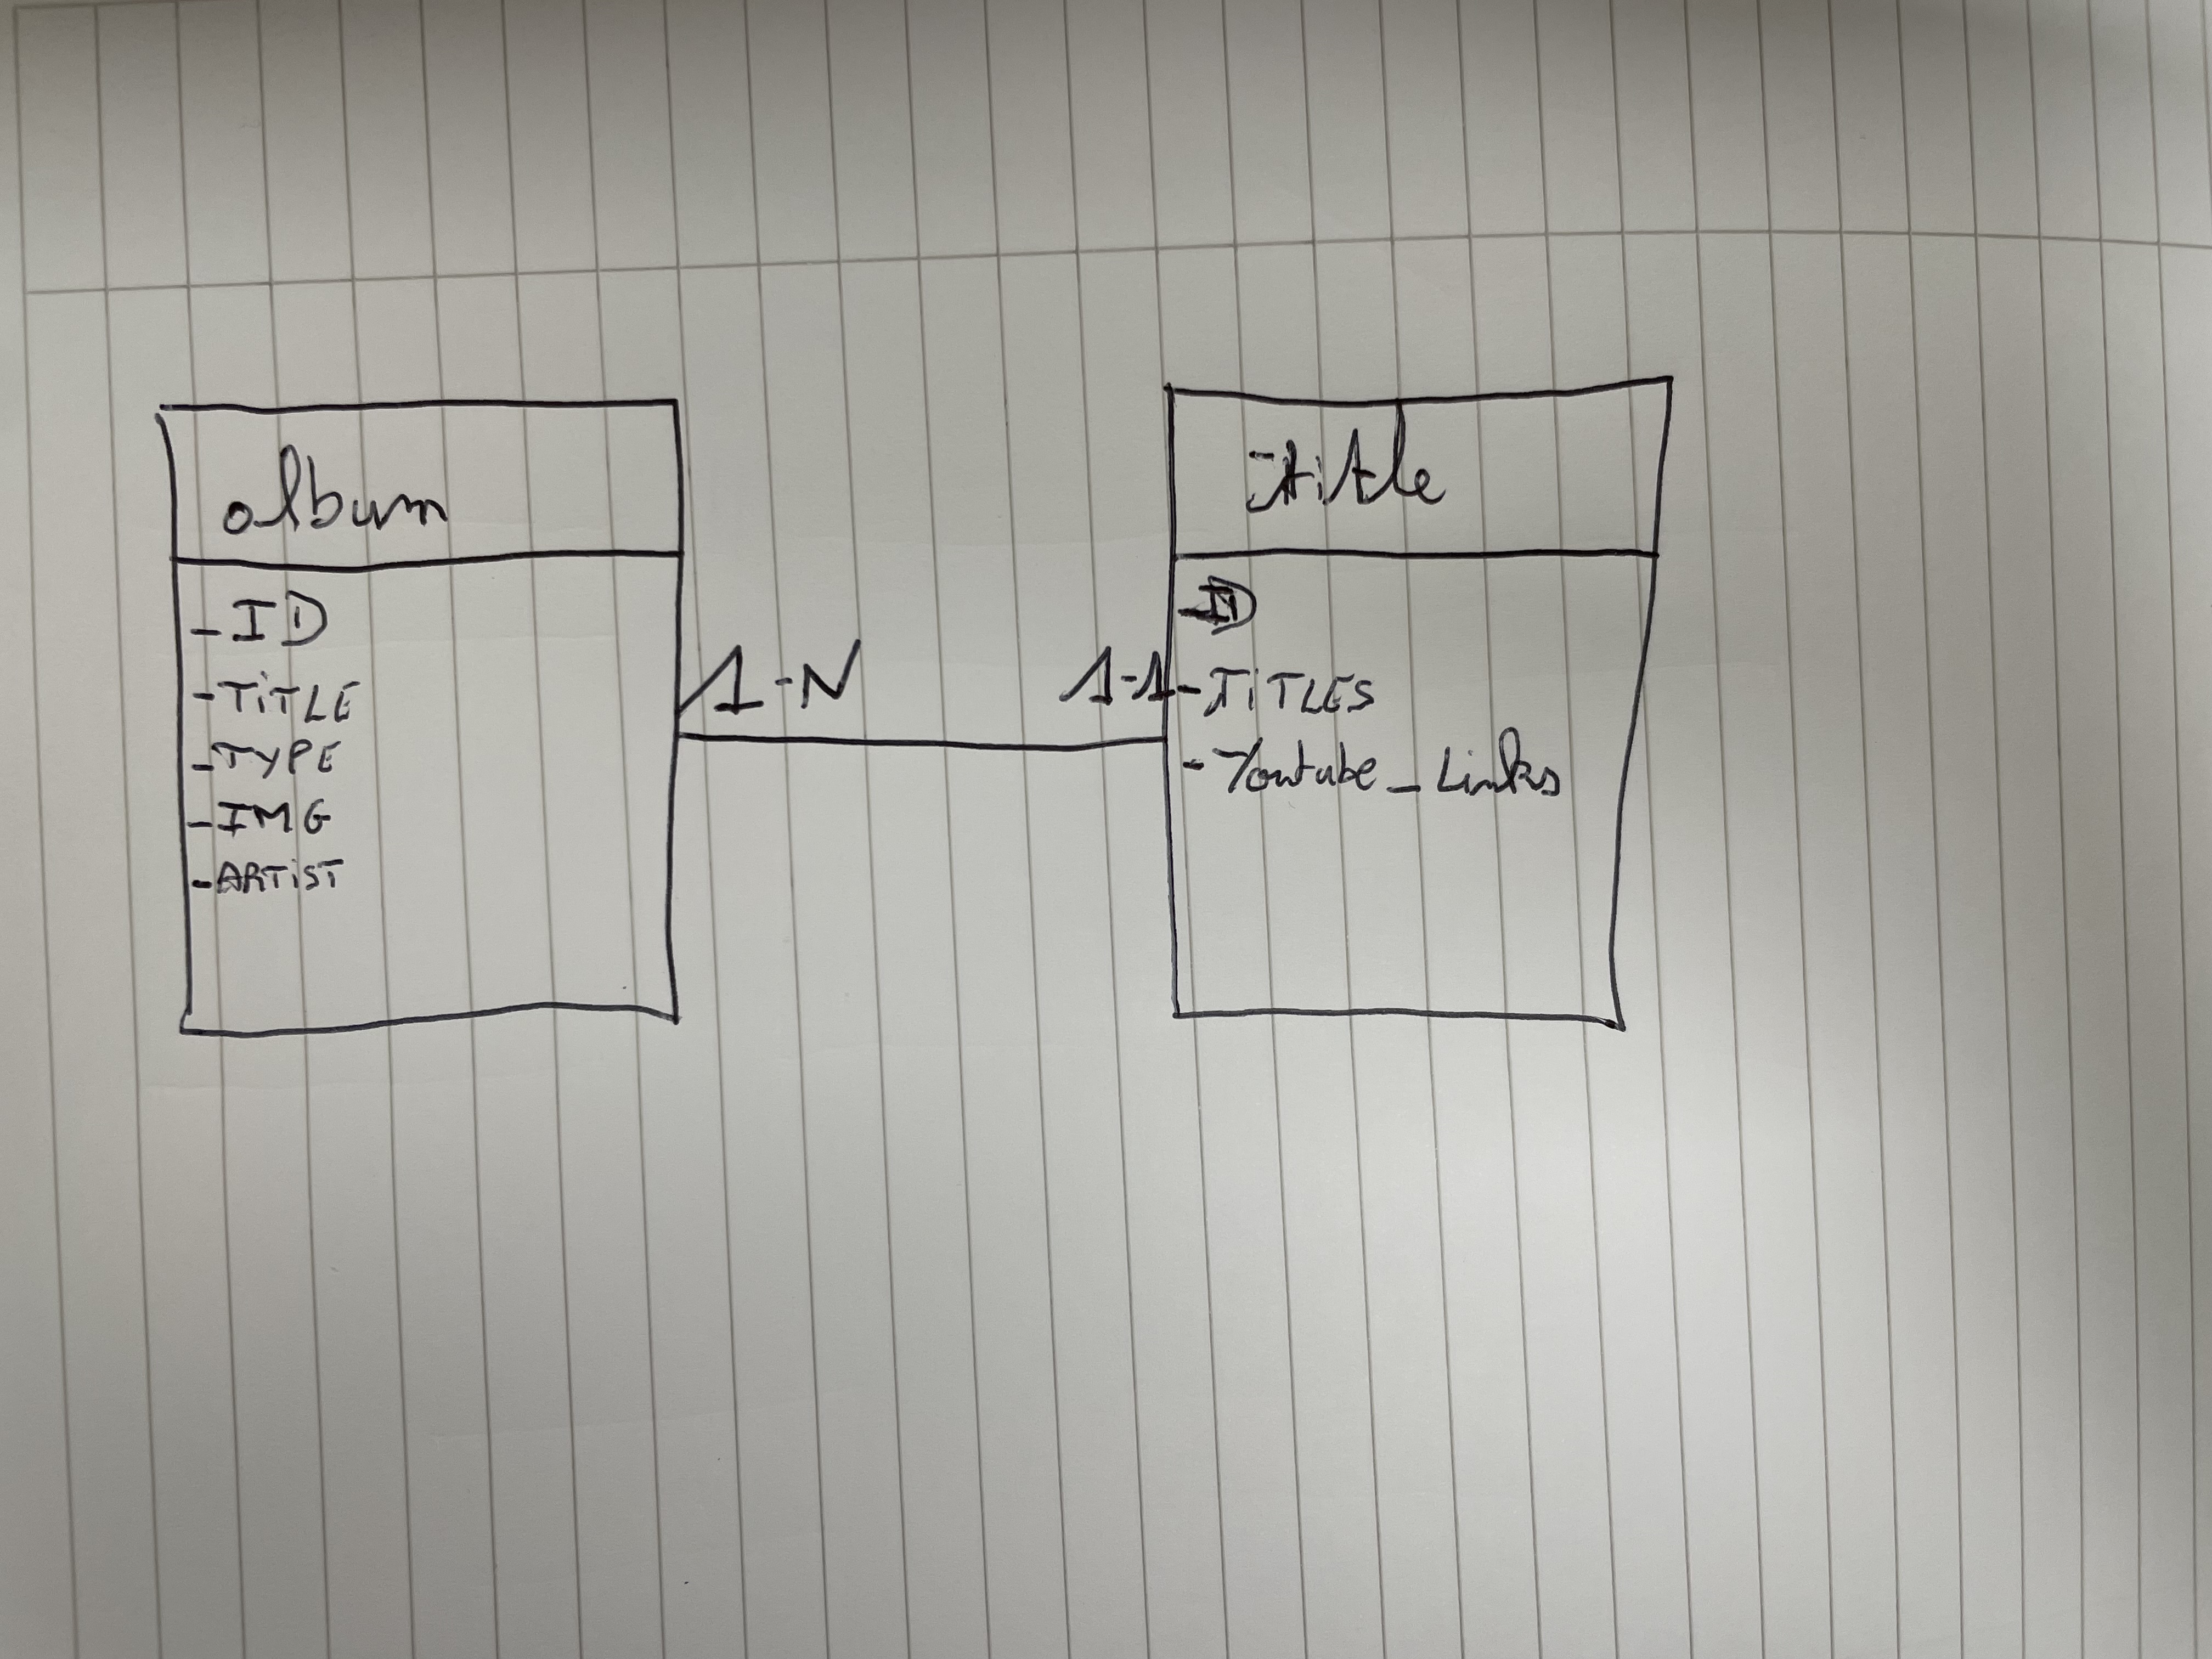 album
- ID
- TiTLE
- TYPE
- IMG
- ARTiST
1-N
1-1
title
- ID
- TiTLES
- Youtube_Links